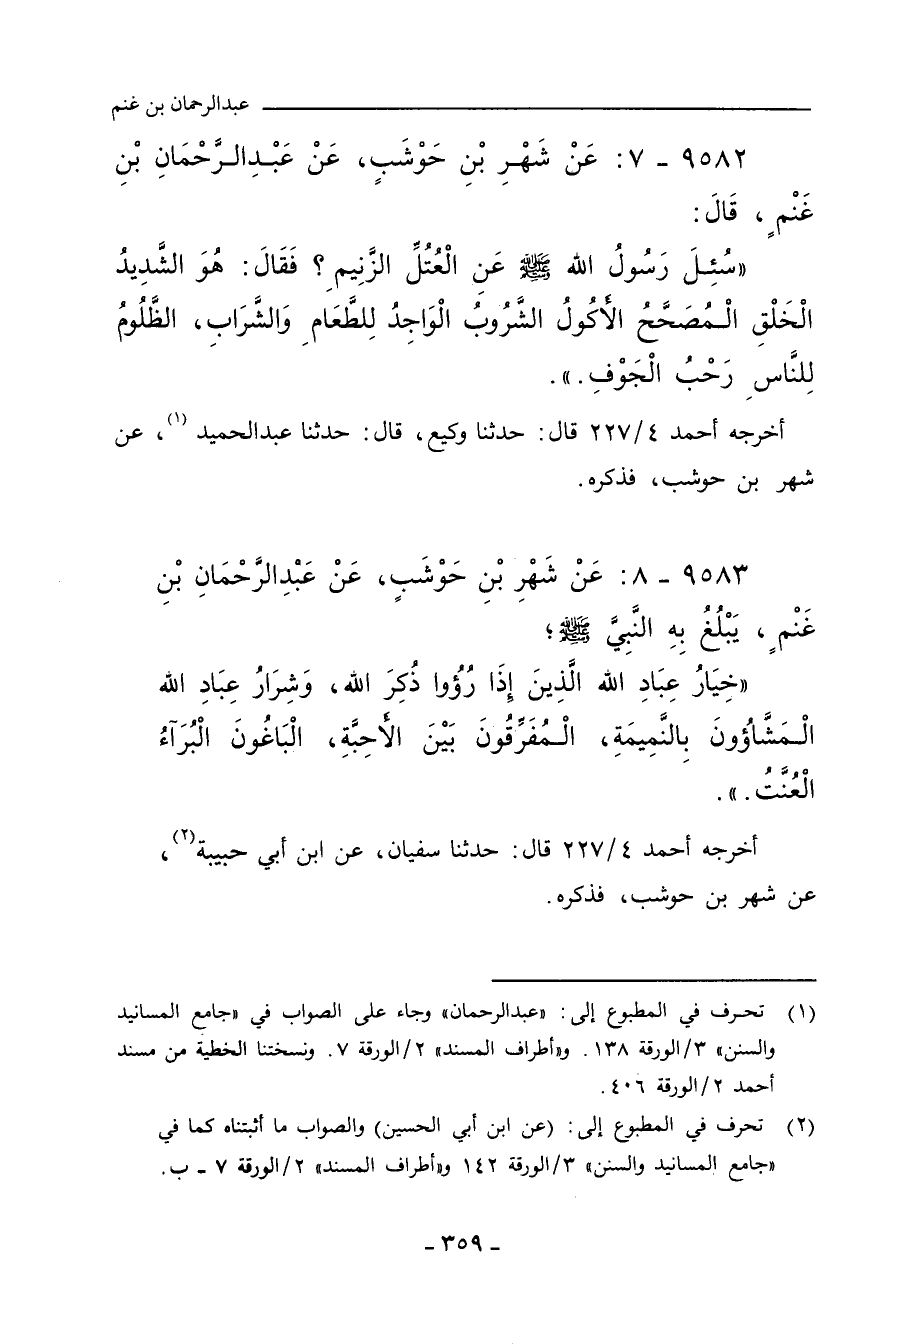 عبدالرحمان بن غنم
٩٥٨٢ - ٧: عَنْ شَهْرِ بْنِ حَوْشَبٍ، عَنْ عَبْدِالرَّحْمَانِ بْنِ
غَنْمٍ، قَالَ:
«سُئِلَ رَسُولُ اللهِ ﷺ عَنِ الْعُتُلِّ الزَّنِيمِ؟ فَقَالَ: هُوَ الشَّدِيدُ
الْخَلْقِ الْمُصَحَّحُ الأَكُولُ الشَّرُوبُ الْوَاجِدُ لِلطَّعَامِ وَالشَّرَابِ، الظَّلُومُ
لِلنَّاسِ رَحْبُ الْجَوْفِ.».
أخرجه أحمد ٤/٢٢٧ قال: حدثنا وكيع، قال: حدثنا عبدالحميد (١)، عن
شهر بن حوشب، فذكره.
٩٥٨٣ - ٨: عَنْ شَهْرِ بْنِ حَوْشَبٍ، عَنْ عَبْدِالرَّحْمَانِ بْنِ
غَنْمٍ، يَبْلُغُ بِهِ النَّبِيَّ ﷺ؛
«خِيَارُ عِبَادِ اللهِ الَّذِينَ إِذَا رُؤُوا ذُكِرَ اللهُ، وَشِرَارُ عِبَادِ اللهِ
الْمَشَّاؤُونَ بِالنَّمِيمَةِ، الْمُفَرِّقُونَ بَيْنَ الأَحِبَّةِ، الْبَاغُونَ الْبُرَآءُ
الْعُنَّتُ.».
أخرجه أحمد ٤/٢٢٧ قال: حدثنا سفيان، عن ابن أبي حبيبة(٢)،
عن شهر بن حوشب، فذكره.
(١) تحرف في المطبوع إلى: «عبدالرحمان» وجاء على الصواب في «جامع المسانيد
والسنن» ٣/الورقة ١٣٨. و«أطراف المسند» ٢/الورقة ٧. ونسختنا الخطية من مسند
أحمد ٢/الورقة ٤٠٦.
(٢) تحرف في المطبوع إلى: (عن ابن أبي الحسين) والصواب ما أثبتناه كما في
«جامع المسانيد والسنن» ٣/الورقة ١٤٢ و«أطراف المسند» ٢/الورقة ٧ - ب.
- ٣٥٩ -